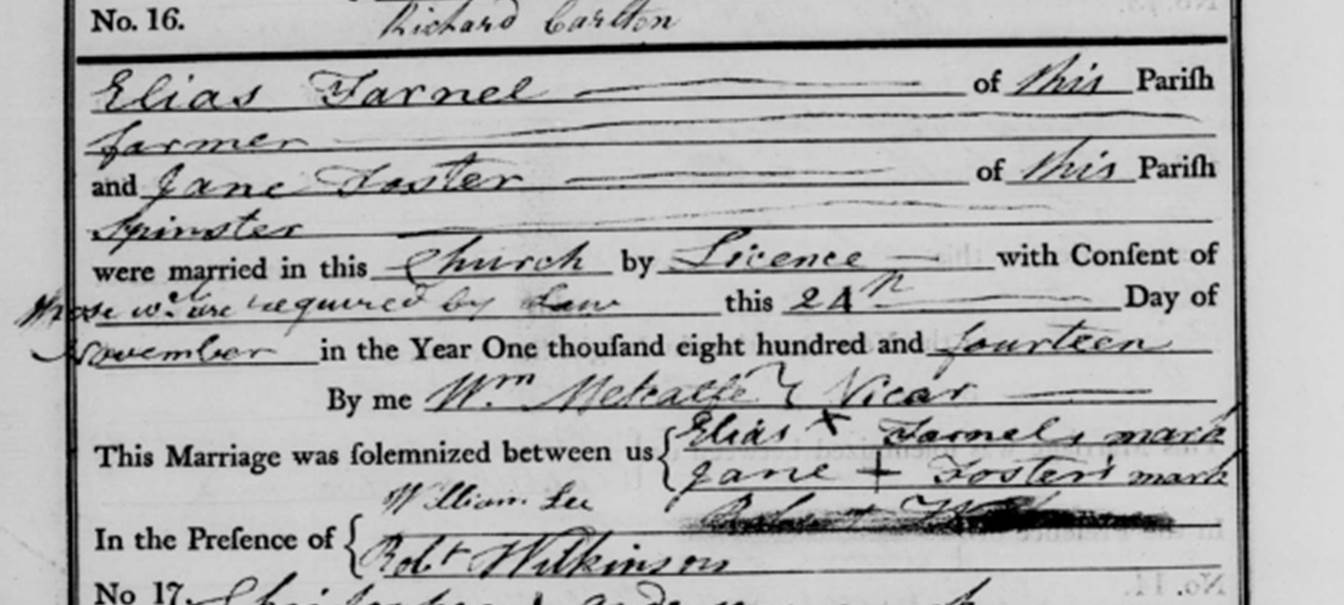 Richard Carlton
No. 16.
Elias Farnel of this Pariſh
farmer
and Jane Foster of this Pariſh
Spinster
were married in this Church by Licence with Conſent of
those wch are required by Law this 24th Day of
November in the Year One thouſand eight hundred and fourteen
By me Wm Metcalfe Vicar
This Marriage was ſolemnized between us { Elias X Farnel's mark
Jane + Foster's mark
William Lee
In the Preſence of { Robt Wilkinson
No 17.